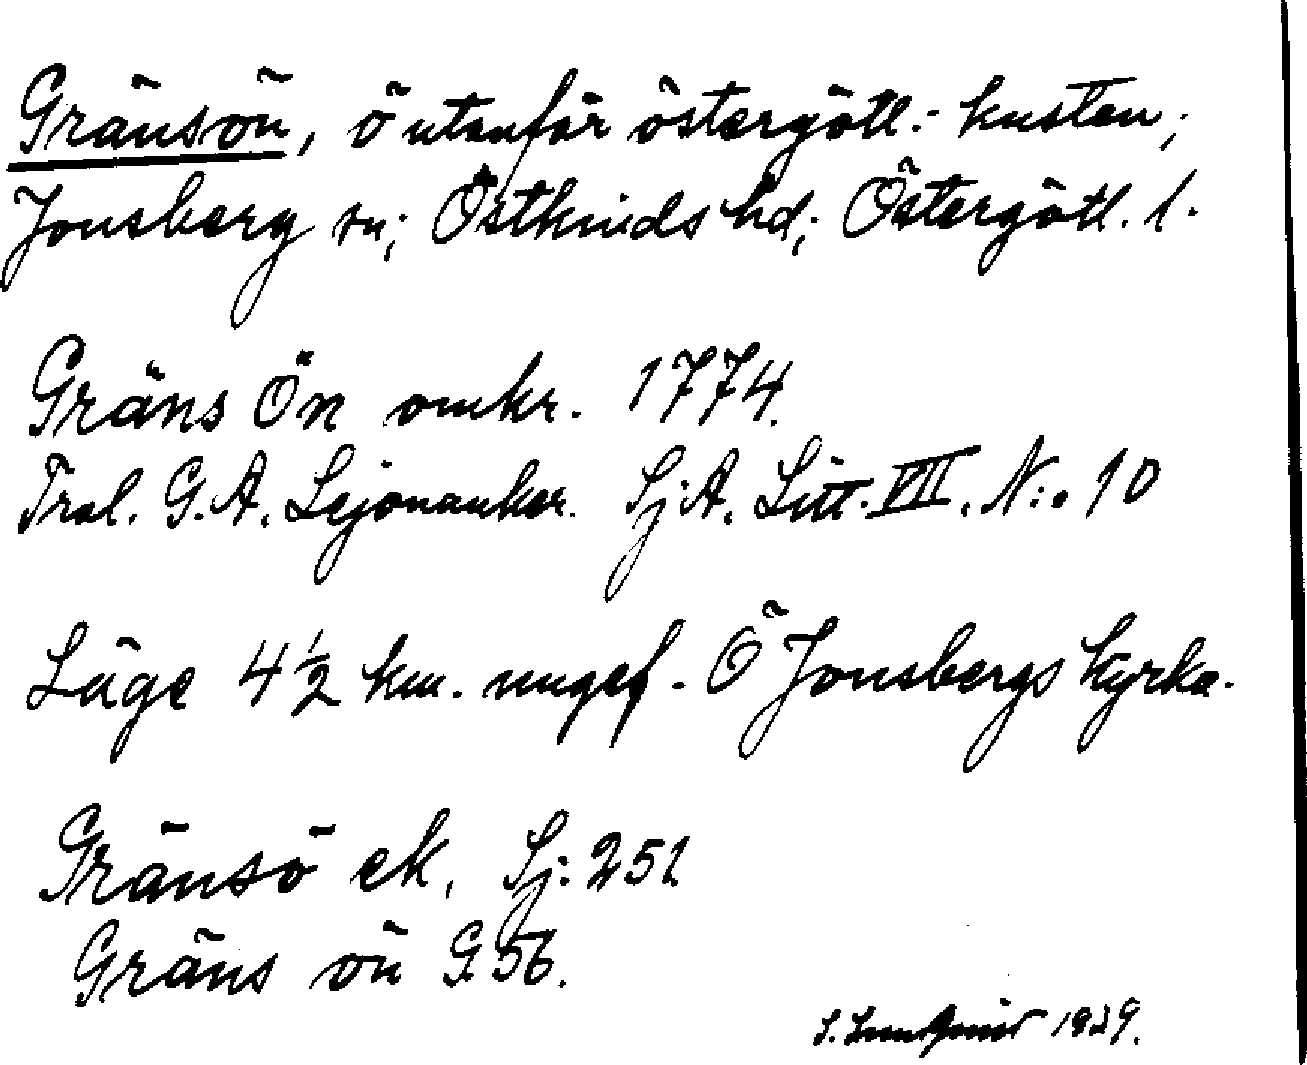 Gränsön, ö utanför östergötl.- kusten,
Jonsberg sn; Östkinds hd; Östergötl. l.
Gräns Ön omkr. 1774.
Trol. G. A. Lejonanker. Sj. A. Litt. VII. N:o 10
Läge 4 1/2 km. ungef. Ö Jonsbergs kyrka.
Gränsö ek. Sj. 251
Gräns ön G. 56.
S. 1939.